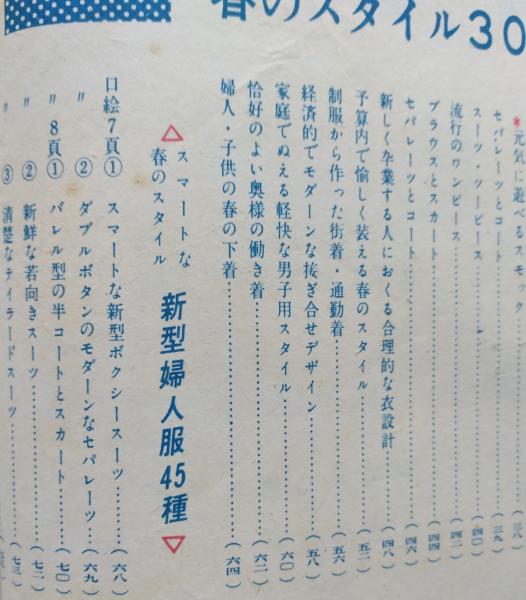 春のスタイル30
＊元気に遊べるスモック……(三八)
セパレーツとコート……(三九)
スーツ・ツーピース……(四〇)
流行のワンピース……(四二)
ブラウスとスカート……(四四)
セパレーツとコート……(四六)
新しく卒業する人におくる合理的な衣設計……(四八)
予算内で愉しく装える春のスタイル……(五二)
制服から作った街着・通勤着……(五六)
経済的でモダーンな接ぎ合せデザイン……(五八)
家庭でぬえる軽快な男子用スタイル……(六〇)
恰好のよい奥様の働き着……(六二)
婦人・子供の春の下着……(六四)
△スマートな春のスタイル 新型婦人服45種▽
口絵7頁① スマートな新型ボクシースーツ……(六八)
〃 ② ダブルボタンのモダーンなセパレーツ…(六九)
〃 8頁① バレル型の半コートとスカート……(七〇)
〃 ② 新鮮な若向きスーツ……(七二)
〃 ③ 清楚なテイラードスーツ……(七三)